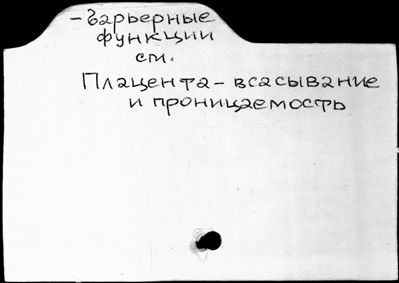 - Барьерные
функции
см.
Плацента - всасывание
и проницаемость